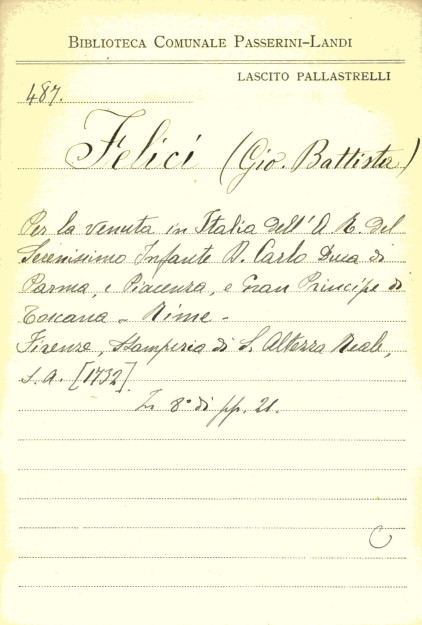 BIBLIOTECA COMUNALE PASSERINI-LANDI
LASCITO PALLASTRELLI
487.
Felici (Gio. Battista)
Per la venuta in Italia dell' A. R. del
Serenissimo Infante D. Carlo Duca di
Parma, e Piacenza, e Gran Principe di
Toscana - Rime -
Firenze, Stamperia di S. Altezza Reale,
s. a. [1732]
In 8° di pp. 21.
C